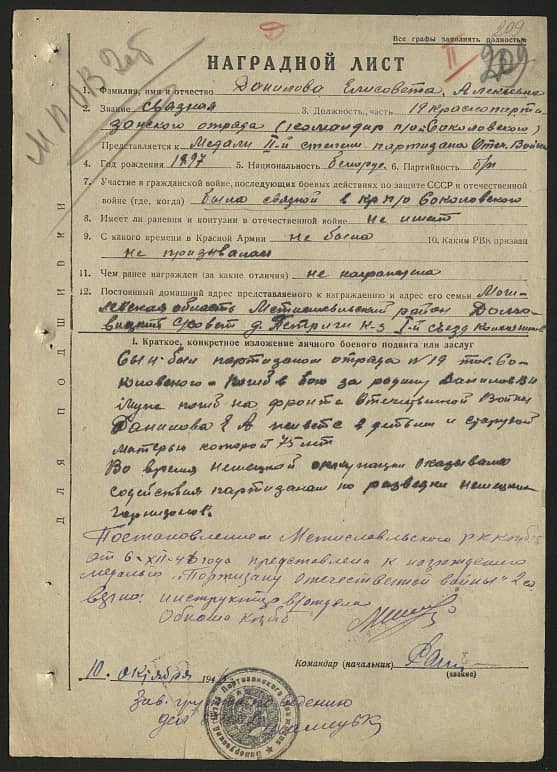 209
Все графы заполнять полностью
II 209
НАГРАДНОЙ ЛИСТ
1. Фамилия, имя и отчество Данилова Елисовета, Алексеевна
2. Звание связная 3. Должность, часть 19 Краснопарти
занского отряда (командир п/о Соколовского)
Представляется к Медали II-й степени партизана Отеч. Войны
4. Год рождения 1897 5. Национальность белорус. 6. Партийность б/п
7. Участие в гражданской войне, последующих боевых действиях по защите СССР и отечественной
войне (где, когда) была связной в кр п/о Соколовского
8. Имеет ли ранения и контузии в отечественной войне не имеет
9. С какого времени в Красной Армии не была 10. Каким РВК призван
не призывалась
11. Чем ранее награжден (за какие отличия) не награждена
12. Постоянный домашний адрес представляемого к награждению и адрес его семьи Моги-
левская область Мстиславльский район
совет д. Петриги к-з 1-й съезд
ДЛЯ ПОДШИВКИ
I. Краткое, конкретное изложение личного боевого подвига или заслуг
Сын был партизаном отряда №19 тов. Со-
коловского погиб в бою за родину Данилов
Муж погиб на фронте Отечественной Войны
Данилова Е А живет с детьми и старухой
матерью которой 75 лет
Во время немецкой оккупации оказывала
содействия партизанам по разведки немецких
гарнизонов.
Постановлением Мстиславльского РК КП(б)Б
от 6-XII-46 года представлена к награждению
медалью "Партизану отечественной войны" 2 ст
верно: инструктор в/отдела
Обкома КП(б)Б
Командир (начальник)
(звание)
10. октября 194
Зав.